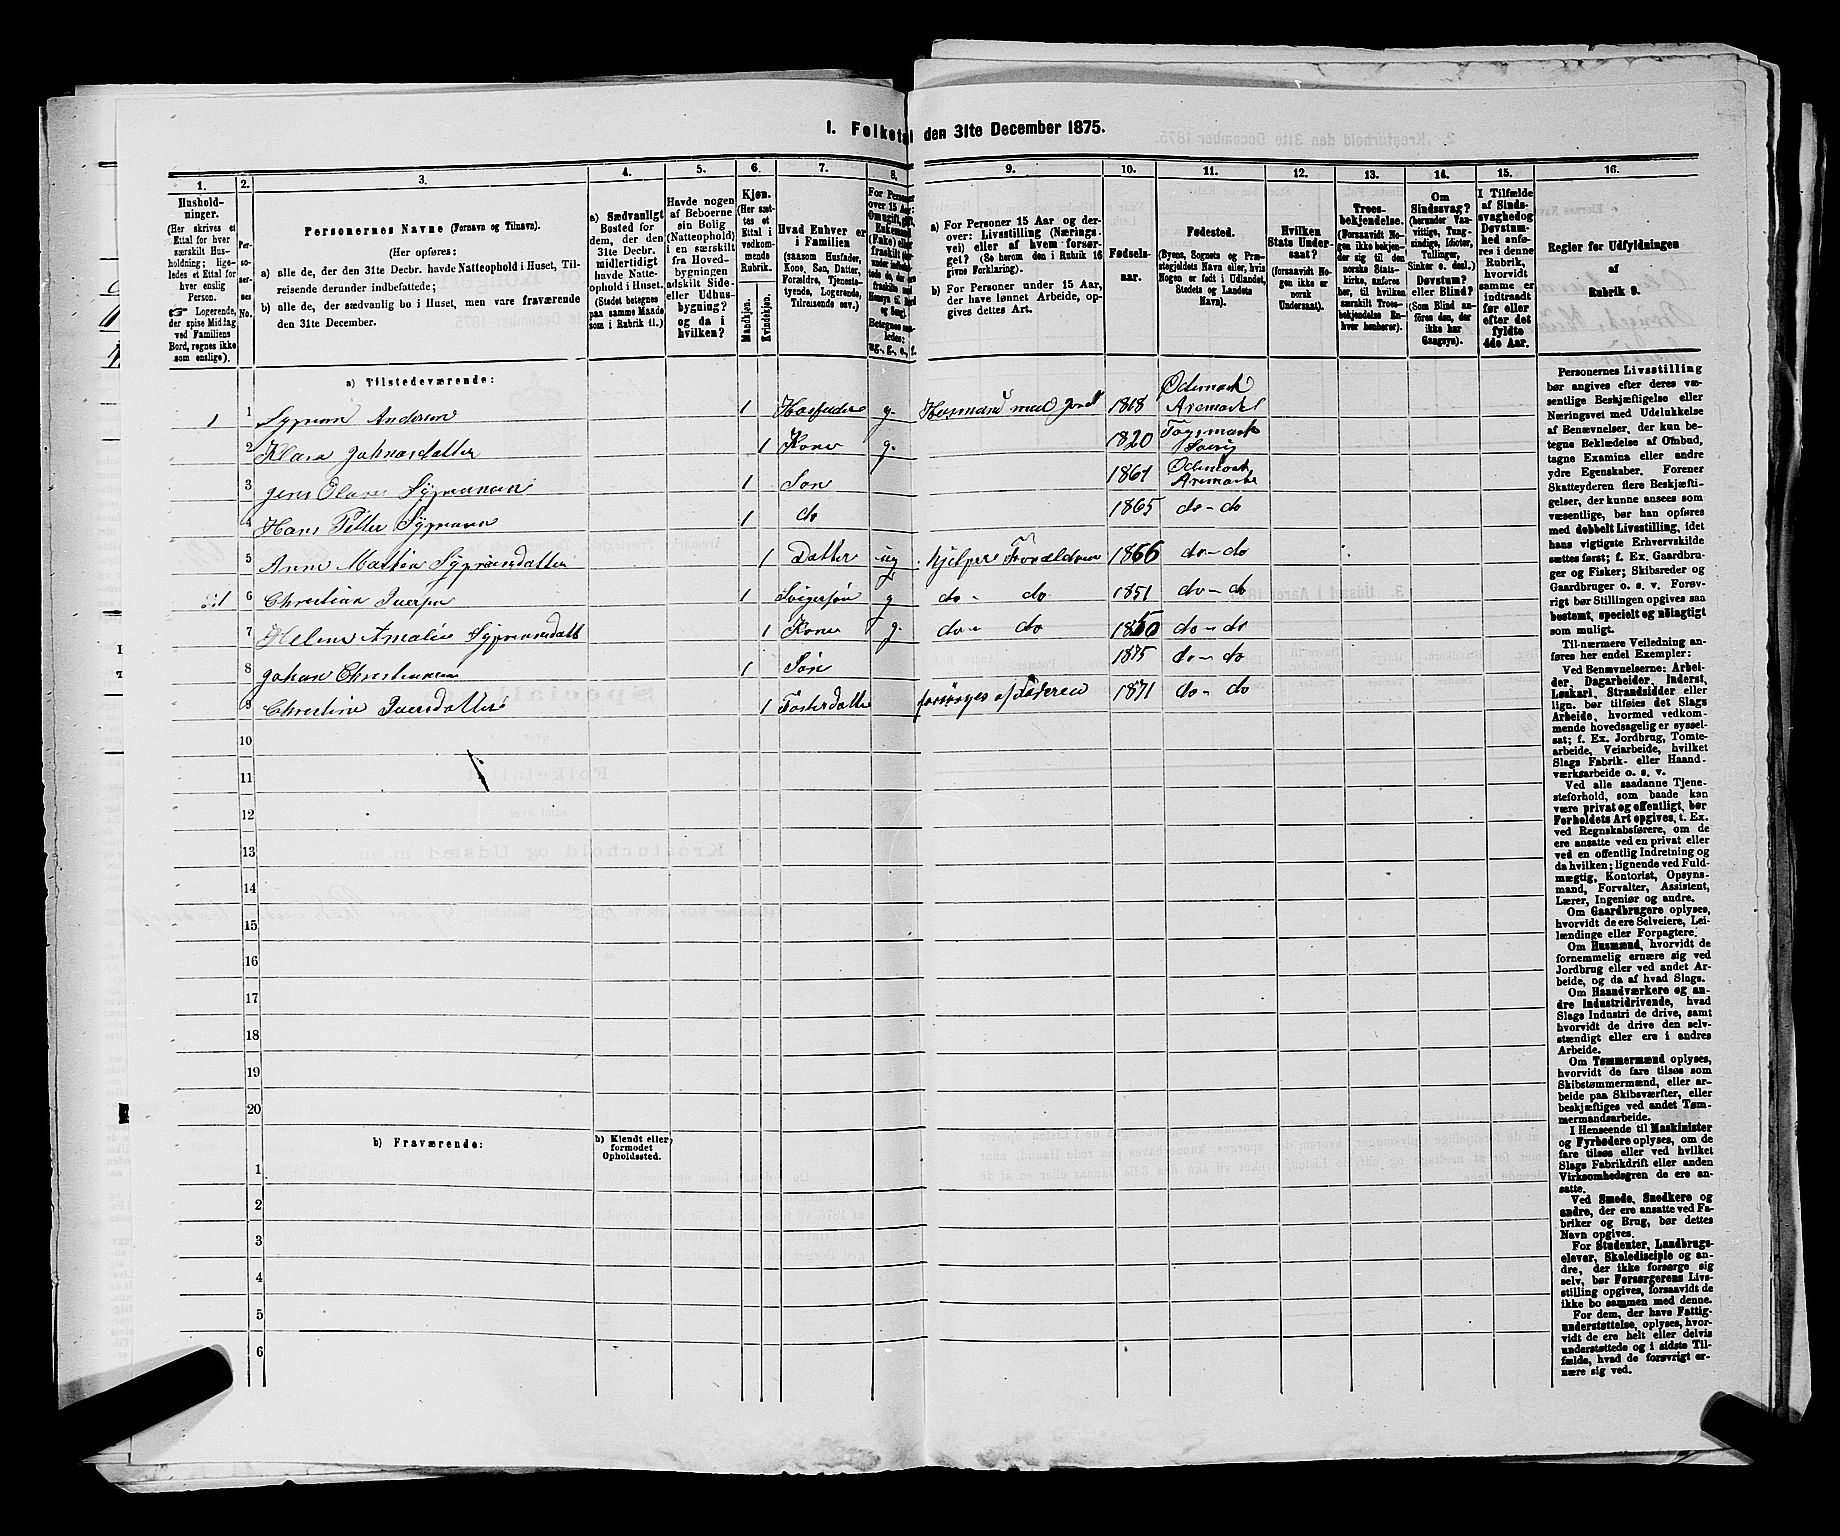 1. Folketal den 31te December 1875.
1. 2. 3. 4. 5. 6. 7. 8. 9. 10. 11. 12. 13. 14. 15. 16.
Hushold-
ninger.
(Her skrives et
Ettal for hver
særskilt Hus-
holdning; lige-
ledes et Ettal for
hver enslig
Person.
☞ Logerende,
der spise Middag
ved Familiens
Bord, regnes ikke
som enslige).
Per-
soner-
nes
No.
Personernes Navne (Fornavn og Tilnavn).
(Her opføres:
a) alle de, der den 31te Decbr. havde Natteophold i Huset, Til-
reisende derunder indbefattede;
b) alle de, der sædvanlig bo i Huset, men vare fraværende
den 31te December.
a) Sædvanligt
Bosted for
dem, der den
31te Decbr.
midlertidigt
havde Natte-
ophold i Huset.
(Stedet betegnes
paa samme Maade
som i Rubrik 11.)
Havde nogen
af Beboerne
sin Bolig
(Natteophold)
i en særskilt
fra Hoved-
bygningen
adskilt Side-
eller Udhus-
bygning?
og da i
hvilken?
Kjøn.
(Her sæt-
tes et
Ettal i
vedkom-
mende
Rubrik.
Mandkjøn.
Kvindekjøn.
Hvad Enhver er
i Familien
(saasom Husfader,
Kone, Søn, Datter,
Forældre, Tjeneste-
tyende, Logerende,
Tilreisende osv.)
For Personer
over 15 Aar:
Om ugift, gift,
Enkemand
(Enke) eller
fraskilt
a) For Personer 15 Aar og der-
over: Livsstilling (Nærings-
vei) eller af hvem forsør-
get? (Se herom den i Rubrik 16
givne Forklaring).
b) For Personer under 15 Aar,
der have lønnet Arbeide, op-
gives dettes Art.
Fødsels-
aar.
Fødested.
(Byens, Sognets og Præ-
stegjeldets Navn eller, hvis
Nogen er født i Udlandet,
Stedets og Landets
Navn).
Hvilken
Stats Under-
saat?
(forsaavidt No-
gen ikke er
norsk
Undersaat).
Troes-
bekjendelse.
(Forsaavidt No-
gen ikke bekjen-
der sig til den
norske Stats-
kirke, anføres
her, til hvilken
særskilt Troes-
bekjendelse En-
hver henhører).
Om
Sindssvag?
(herunder Van-
vittige, Tung-
sindige, Idioter,
Tullinger,
Sinker o. desl.)
Døvstum?
eller Blind?
(Som Blind an-
føres den, der
ikke har
Gangsyn).
I Tilfælde
af Sinds-
svaghed og
Døvstum-
hed anfø-
res i denne
Rubrik,
hvorvidt
samme er
indtraadt
før eller
efter det
fyldte
4de Aar.
Regler for Udfyldningen
af
Rubrik 9.
a) Tilstedeværende:
1 1 Syvren Andersen 1 Husfader g. Husmand med Jord 1818 Ødemark Aremark
2 Klara Johnasdatter 1 Kone g. 1820 Sverig
3 Jens Olaves 1 Søn 1861 Ødemark Aremark
4 Hans Petter 1 do 1865 do - do
5 Anne 1 Datter ug hjelper Forældrene 1866 do - do
6 Christian Iversen 1 Svigersøn g do - do 1851 do - do
7 Helene Amalie 1 Kone g. do - do 1850 do - do
8 Johan Christiansen 1 Søn 1875 do - do
9 Christine Iversdatter 1 Fosterdatter forsørges af Faderen 1871 do - do
10
11
12
13
14
15
16
17
18
19
20
b) Fraværende:
b) Kjendt eller
formodet
Opholdssted.
1
2
3
4
5
6
Personernes Livsstilling
bør angives efter deres væ-
sentlige Beskjæftigelse eller
Næringsvei med Udelukkelse
af Benævnelser, der kun be-
tegne Beklædelse af Ombud,
tagne Examina eller andre
ydre Egenskaber. Forener
Skatteyderen flere Beskjæfti-
gelser, der kunne ansees som
væsentlige, bør han opføres
med dobbelt Livsstilling, idet
hans vigtigste Erhvervskilde
sættes først; f. Ex. Gaardbru-
ger og Fisker; Skibsreder og
Gaardbruger o. s. v. Forøv-
rigt bør Stillingen opgives saa
bestemt, specielt og nøiagtigt
som muligt.
Til nærmere Veiledning an-
føres her endel Exempler:
Ved Benævnelserne: Arbei-
der, Dagarbeider, Inderst,
Løskarl, Strandsidder eller
lign. bør tilføies det Slags
Arbeide, hvormed vedkom-
mende hovedsagelig er syssel-
sat; f. Ex. Jordbrug, Tomte-
arbeide, Veiarbeide, hvilket
Slags Fabrik- eller Haand-
værksarbeide o. s. v.
Ved alle saadanne Tjene-
steforhold, som baade kan
være privat og offentligt, bør
Forholdets Art opgives, t. Ex.
ved Regnskabsførere, om de
ere ansatte ved en privat eller
ved en offentlig Indretning og
da hvilken; lignende ved Fuld-
mægtig, Kontorist, Opsyns-
mand, Forvalter, Assistent,
Lærer, Ingeniør og andre.
Om Gaardbrugere oplyses,
hvorvidt de ere Selveiere, Lei-
lændinge eller Forpagtere.
Om Husmænd, hvorvidt de
fornemmelig ernære sig ved
Jordbrug eller ved andet Ar-
beide, og da af hvad Slags.
Om Haandværkere og an-
dre Industridrivende, hvad
Slags Industri de drive, samt
hvorvidt de drive den selv-
stændigt eller ere i andres
Arbeide.
Om Tømmermænd oplyses,
hvorvidt de fare tilsøs som
Skibstømmermænd, eller ar-
beide paa Skibsværfter, eller
beskjæftiges ved andet Tøm-
mermandsarbeide.
I Henseende til Maskinister
og Fyrbødere oplyses, om de
fare tilsøs eller ved hvilket
Slags Fabrikdrift eller anden
Virksomhedsgren de ere an-
satte.
Ved Smede, Snedkere og
andre, der ere ansatte ved Fa-
briker og Brug, bør dettes
Navn opgives.
For Studenter, Landbrugs-
elever, Skoledisciple og an-
dre, der ikke forsørge sig
selv, bør Forsørgerens Livs-
stilling opgives, forsaavidt de
ikke bo sammen med denne.
For dem, der have Fattig-
understøttelse, oplyses, hvor-
vidt de ere helt eller delvis
understøttede og i sidste Til-
fælde, hvad de forøvrigt er-
nære sig ved.